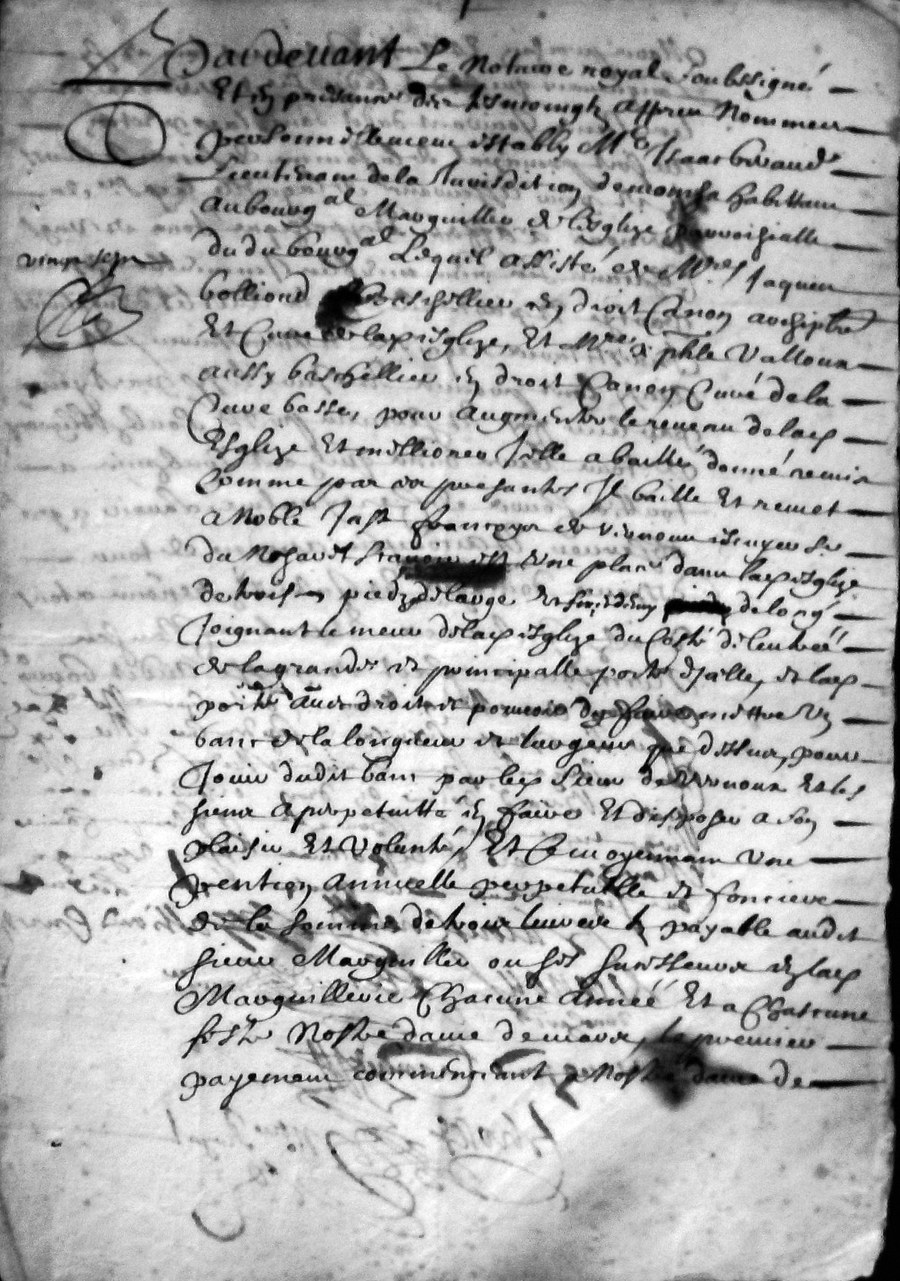 Pardevant Le Notaire royal soubssigné
Et en presance des tesmoingtz appres Nommes
personnellement estably Me Isaac
Lieutenant de la Jurisdition de habittant
au bourg al Marguillier de l'esglize parroissialle
du du bourg al Lequel assisté de Mres Jaques
vingt sept
bolliond baschellier en droit Canon archiptre
Et Curé de lad esglize, Et Mre phle Valloux
aussy baschellier en droit Canon Curé de la
Cure basse, pour augmenter le revenu de lad
Esglize Et melliorer Icelle a baillé donné remis
Comme par ces presantes Il baille Et remet
a Noble Just françoys de Vernoux escuyer Sr
du Nozaret sçavoir est Une place dans lad esglize
de trois piedz de large et six de long
Joignant le meur de lad esglize du Costé de l'entreé
de la grande et principalle porte d'jcelle, et lad
porte avec droit et pouvoir dy faire mettre Un
banc de la longueur et largeur que dessus, pour
Jouir dudit banc par led Sieur de Vernoux Et les
siens a perpetuitté en faire Et disposer a son
plaisir Et Volonté, Et Ce moyennant Une
pention annuelle perpetuelle et fonciere
de la somme de trois livres payable audit
sieur Marguillier ou ses successeurs en lad
Marguillerie Chacune Anneé Et a Chascune
feste Nostre dame de mars, le premier
payement commenceant a Nostre dame de